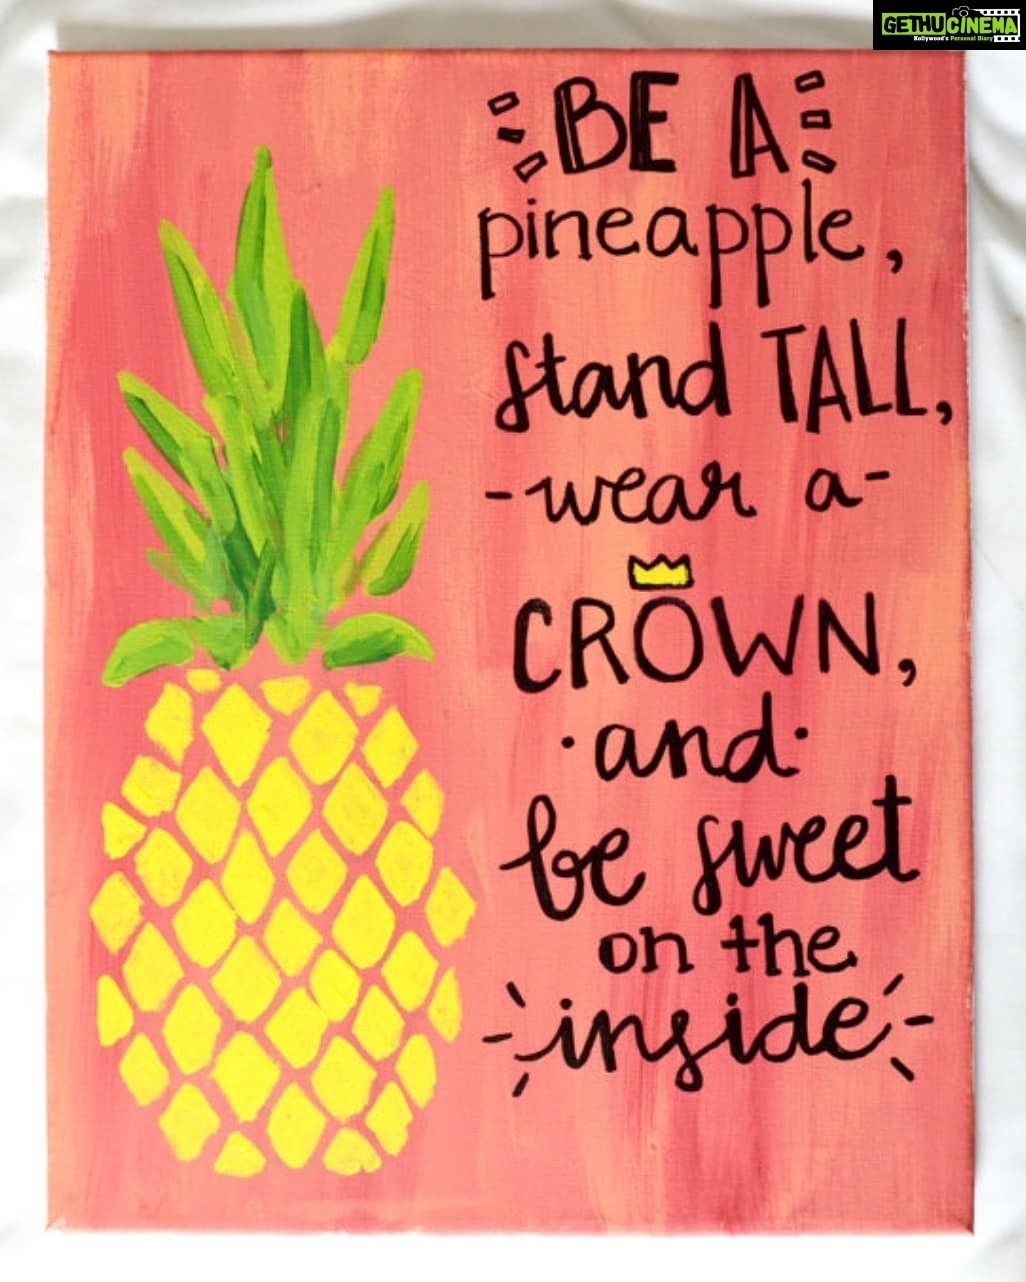 GETHUCINEMA
Kollywood's Personal Diary
BE A
pineapple,
stand TALL,
-wear a-
CROWN,
·and·
be sweet
on the
inside